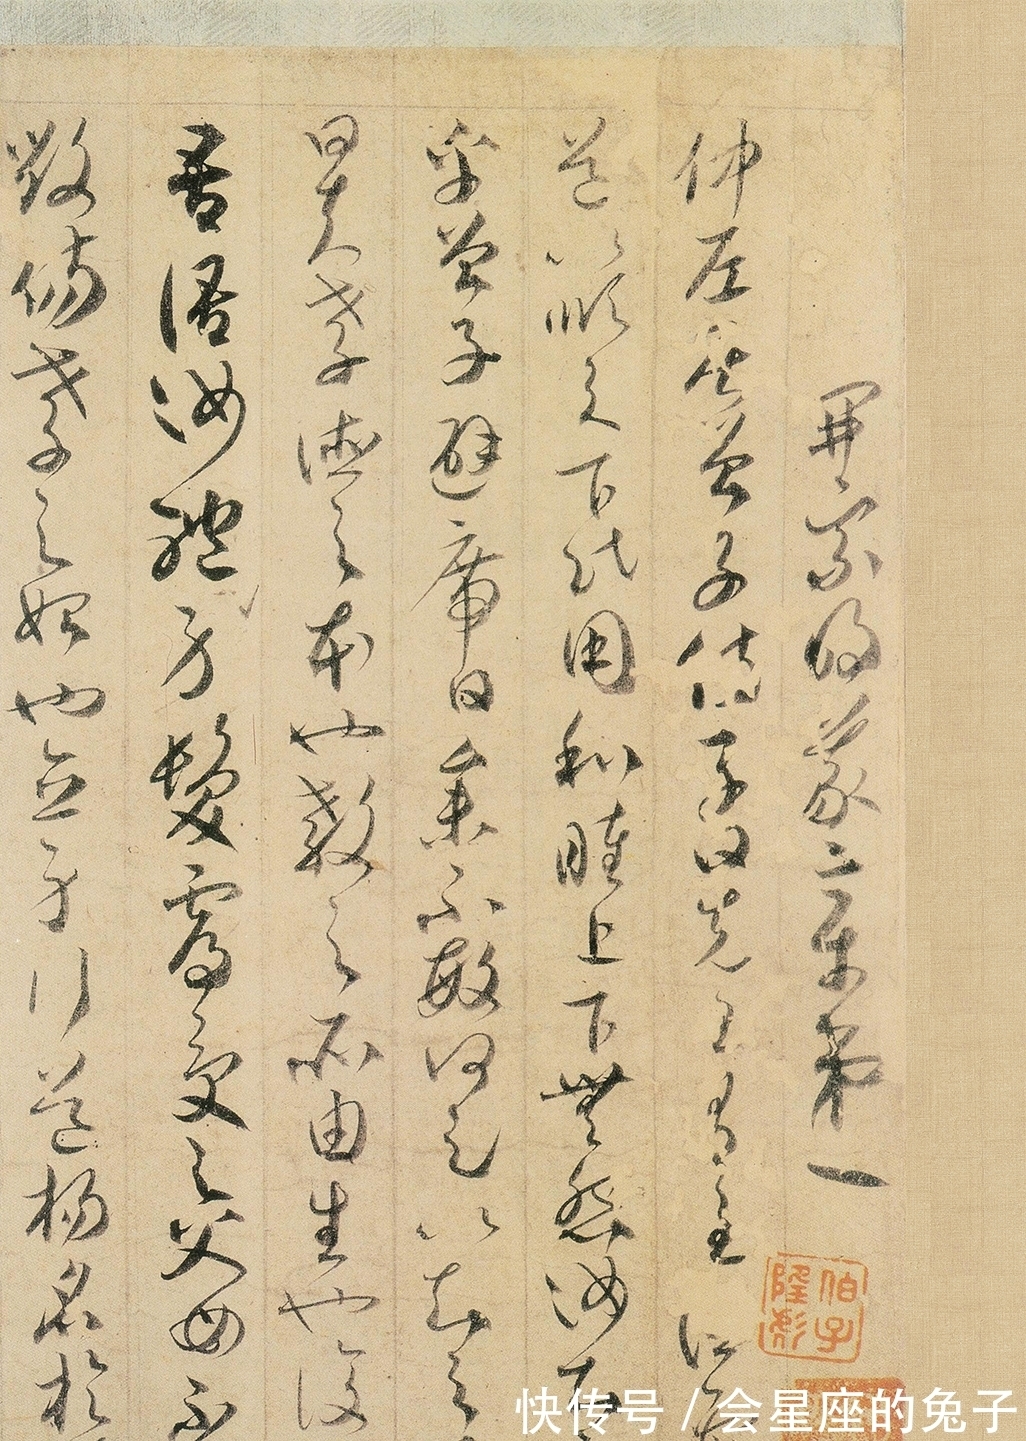 開宗明義章第一
仲尼居曾子侍子曰先王有至德
道以順天下民用和睦上下無怨汝知
乎曾子避席曰參不敏何足以知之
曰夫孝德之本也教之所由生也復
吾語汝體身髮膚受之父母不
毀傷孝之始也立身行道揚名於
快传号 / 会星座的兔子